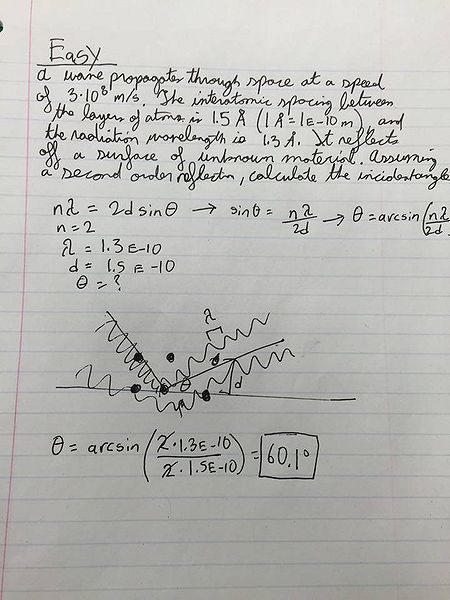 Easy
a wave propagates through space at a speed
of 3·10⁸ m/s. The interatomic spacing between
the layers of atoms is 1.5 Å (1 Å = 1E-10 m), and
the radiation wavelength is 1.3 Å. It reflects
off a surface of unknown material. Assuming
a second order reflectn, calculate the incidentangle
nλ = 2d sinθ → sinθ = nλ/2d → θ = arcsin(nλ/2d
n = 2
λ = 1.3 E-10
d = 1.5 E-10
θ = ?
λ
θ
d
θ = arcsin (2·1.3E-10 / 2·1.5E-10) = 60.1°